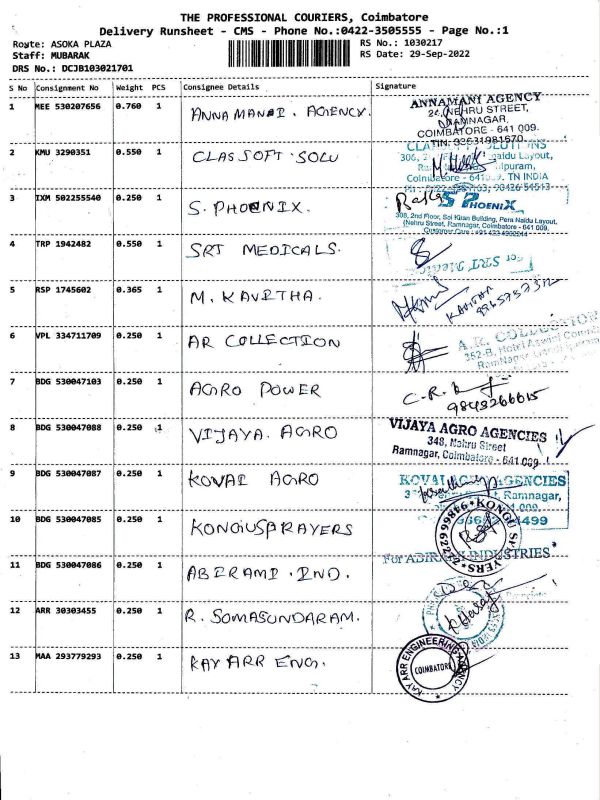 THE PROFESSIONAL COURIERS, Coimbatore
Delivery Runsheet - CMS - Phone No.:0422-3505555 - Page No.:1
Route: ASOKA PLAZA
RS No.: 1030217
Staff: MUBARAK
RS Date: 29-Sep-2022
DRS No.: DCJB103021701
S No Consignment No Weight PCS Consignee Details Signature
1 MEE 530207656 0.760 1 ANNAMANI. AGENCY.
ANNAMANI AGENCY
NEHRU STREET,
RAMNAGAR,
COIMBATORE - 641 009.
2 KMU 3290351 0.550 1 CLASSOFT SOLU
306,
Naidu Layout,
TN INDIA
3 IXM 502255540 0.250 1 S. PHOENIX.
S PHOENIX
308, 2nd Floor, Sai Kiran Building, Pera Naidu Layout,
(Nehru Street, Ramnagar, Coimbatore - 641 009.
4 TRP 1942482 0.550 1 SRI MEDICALS.
For SRI Medic
5 RSP 1745602 0.365 1 M. KAVITHA.
KAVITHA
6 VPL 334711709 0.250 1 AR COLLECTION
A.R. COLLECTION
352-B, Hotel
RamNagar
7 BDG 530047103 0.250 1 AGRO POWER
9843266615
8 BDG 530047088 0.250 1 VIJAYA. AGRO
VIJAYA AGRO AGENCIES
348, Nehru Street
Ramnagar, Coimbatore - 641 009
9 BDG 530047087 0.250 1 KOVAI AGRO
KOVAI AGRO AGENCIES
Ramnagar,
10 BDG 530047085 0.250 1 KONGUSPRAYERS
KONGU SPRAYERS
11 BDG 530047086 0.250 1 ABIRAMI. IND.
For ABIRAMI INDUSTRIES
12 ARR 30303455 0.250 1 R. SOMASUNDARAM.
13 MAA 293779293 0.250 1 KAY ARR ENG.
KAY ARR ENGINEERING AGENCY
COIMBATORE